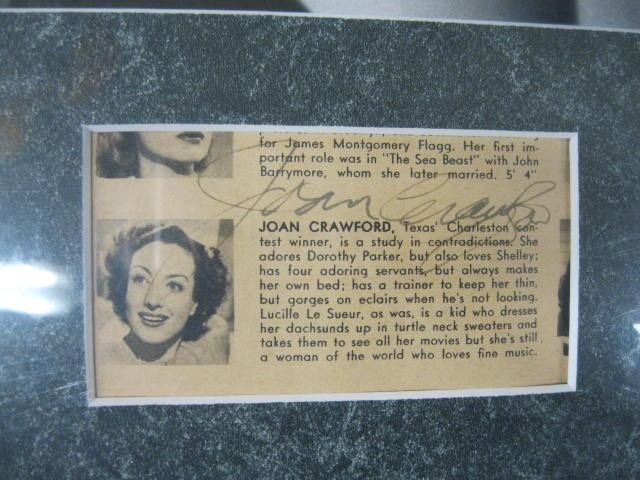 for James Montgomery Flagg. Her first im-
portant role was in "The Sea Beast" with John
Barrymore, whom she later married. 5' 4"
Joan Crawford
JOAN CRAWFORD, Texas' Charleston con-
test winner, is a study in contradictions. She
adores Dorothy Parker, but also loves Shelley;
has four adoring servants, but always makes
her own bed; has a trainer to keep her thin,
but gorges on eclairs when he's not looking.
Lucille Le Sueur, as was, is a kid who dresses
her dachsunds up in turtle neck sweaters and
takes them to see all her movies but she's still
a woman of the world who loves fine music.